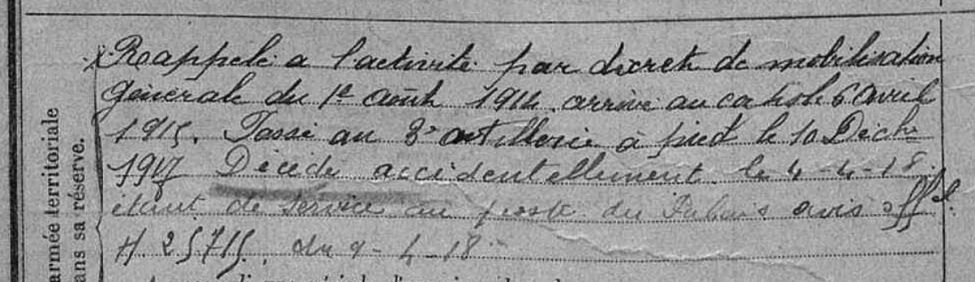 Rappelé à l'activité par décret de mobilisation
Générale du 1er Août 1914. arrivé au corps le 6 avril
1915. Passé au 8e artillerie à pied le 10 Décbre
1917 Décédé accidentellement le 4-4-18
étant de service au poste du Palais avis offel
H 25715. du 9-4-18
armée territoriale
ans sa réserve.